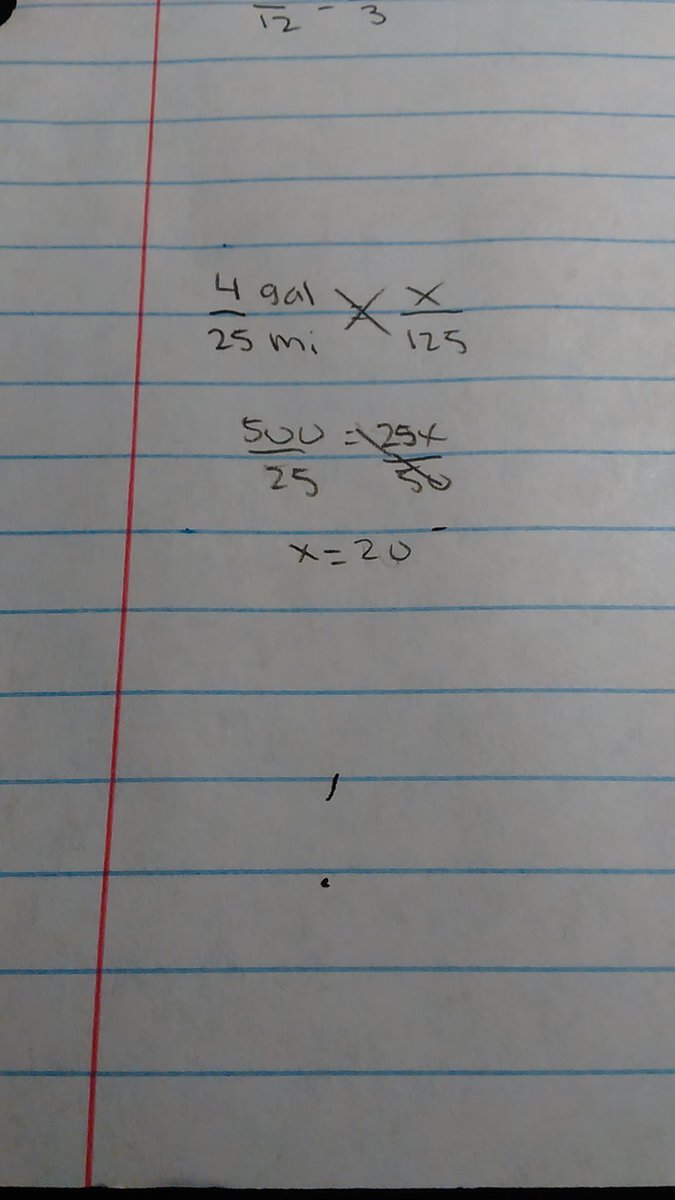 12 - 3
4 gal X x
25 mi 125
500 = 25x
25 50
x = 20